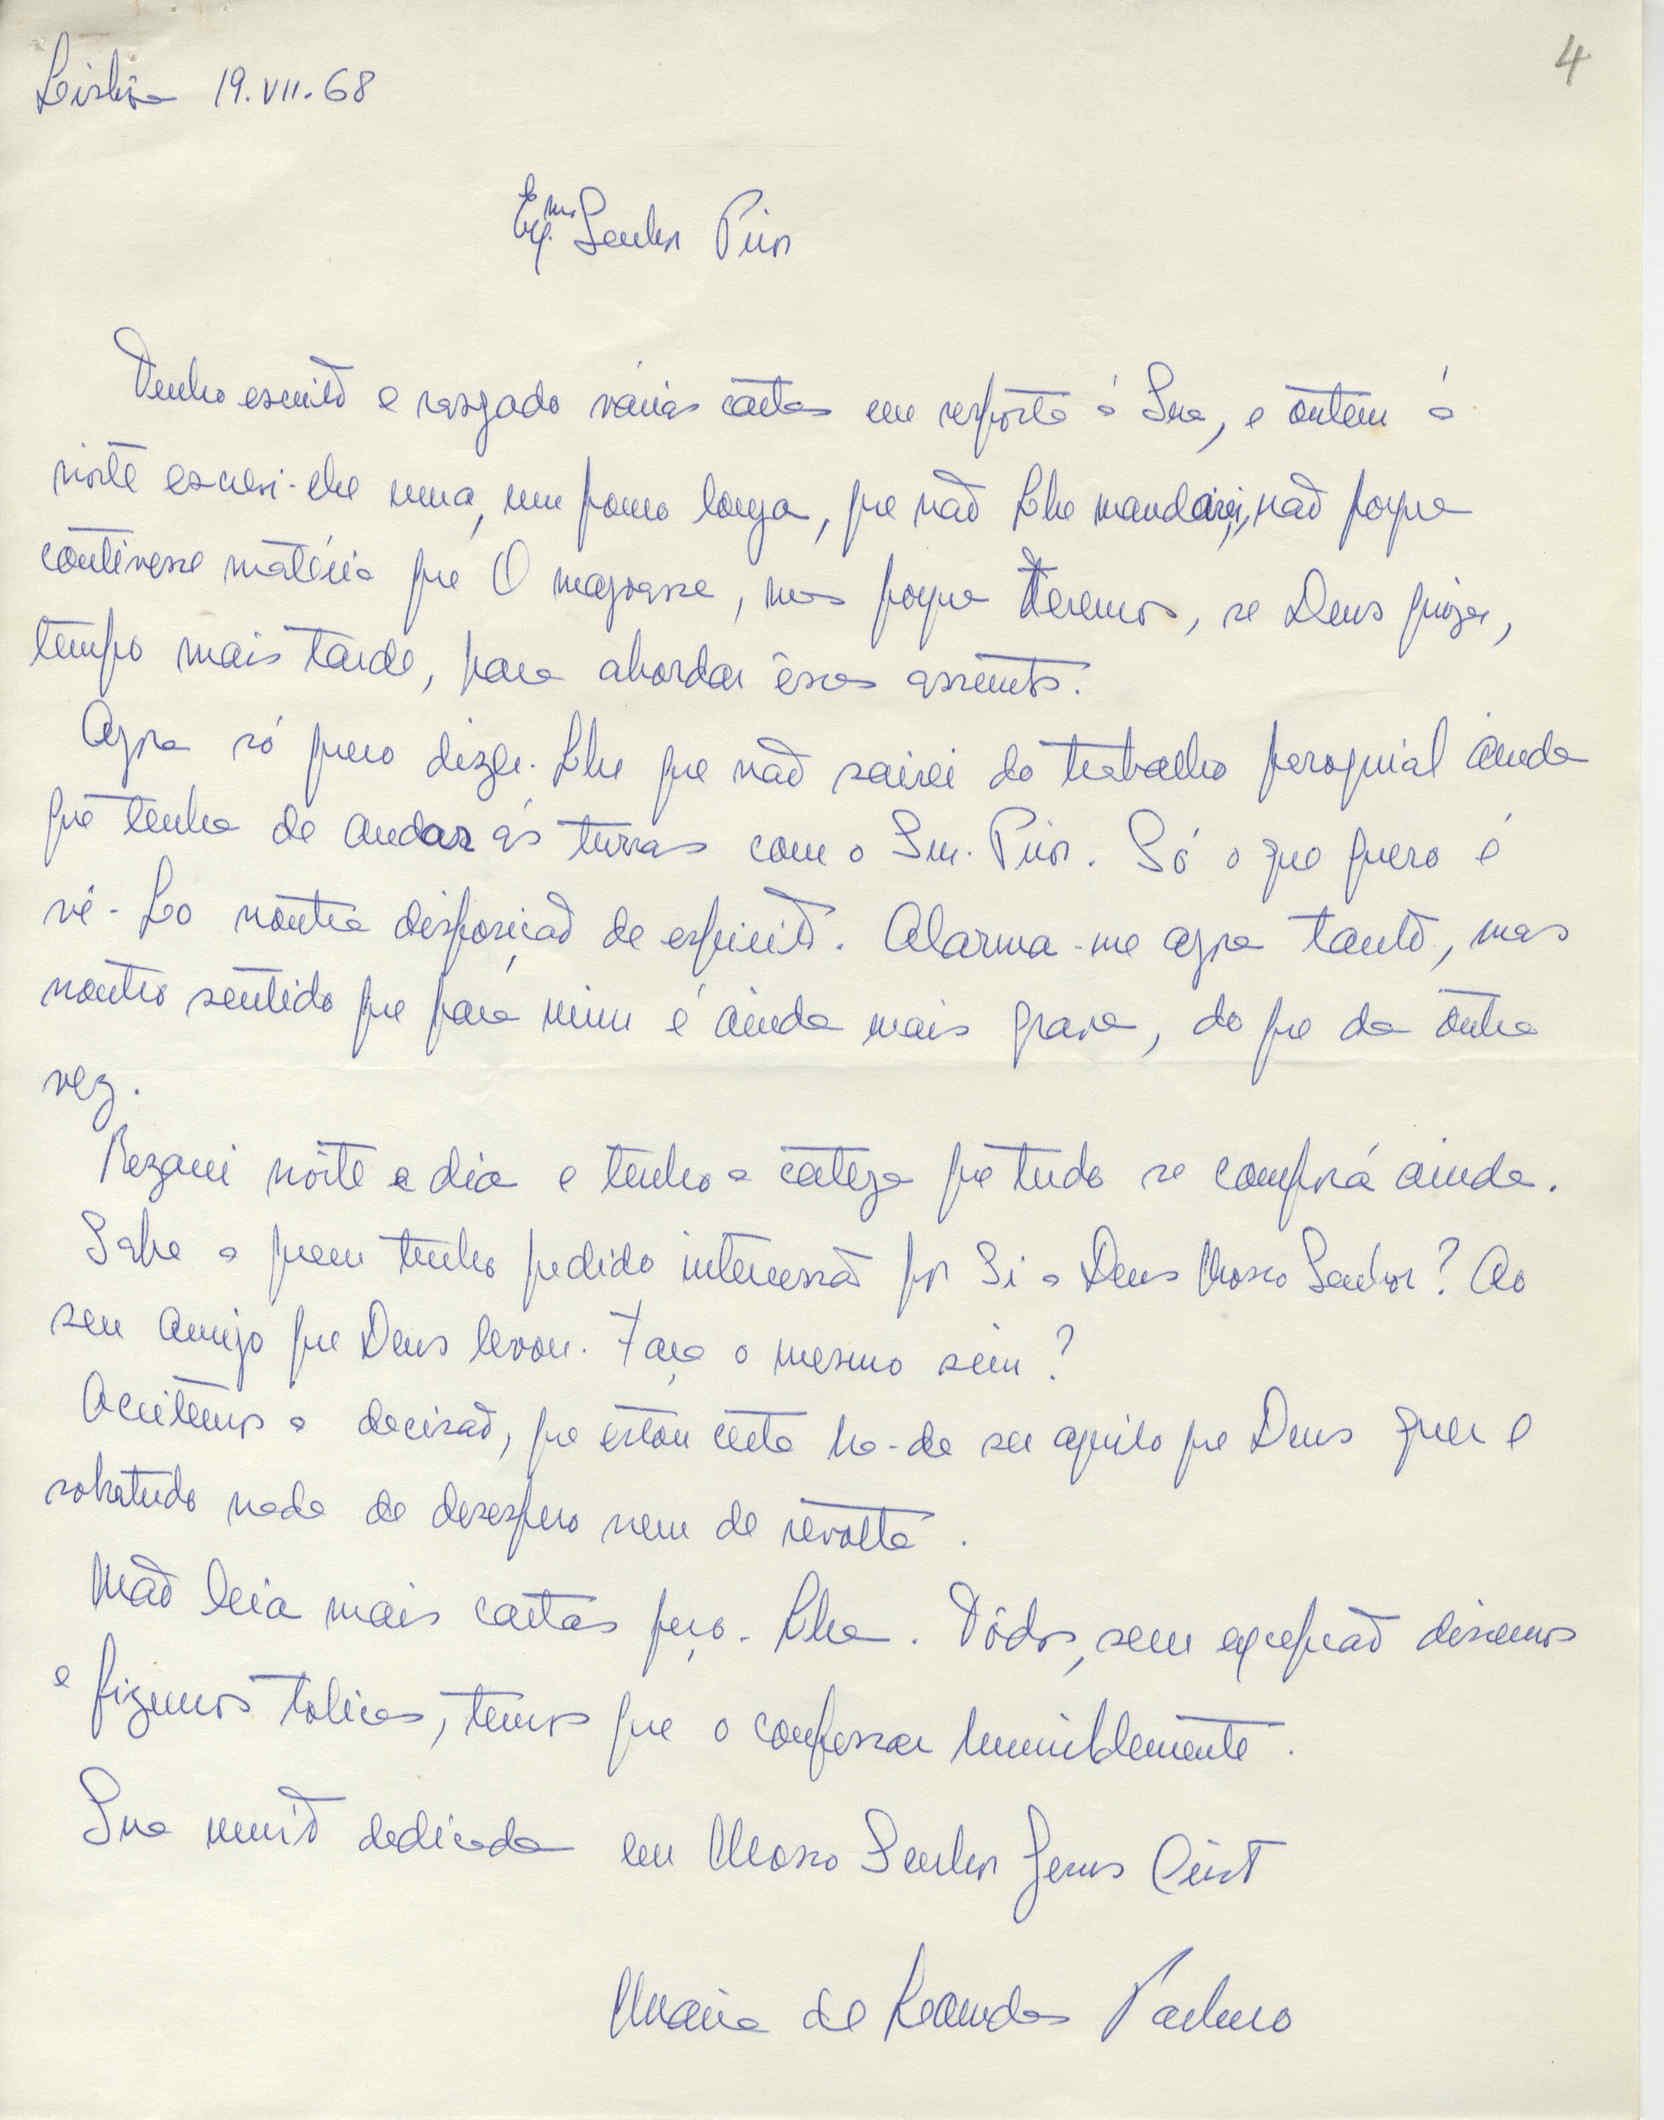 4
Lisbôa 19.VII.68
Exmo. Senhor Prior
Tenho escrito e rasgado várias cartas em resposta á Sua, e ontem á
noite escrevi-lhe uma, um pouco longa, que não Lhe mandarei, não porque
contivesse matéria que O magoasse, mas porque teremos, se Deus quizer,
tempo mais tarde, para abordar êsses assuntos.
Agora só quero dizer-Lhe que não sairei do trabalho paroquial ainda
que tenha de andar ás turras com o Snr. Prior. Só o que quero é
vê-Lo noutra disposição de espirito. Alarma-me agora tanto, mas
noutro sentido que para mim é ainda mais grave, do que da outra
vez.
Rezarei noite e dia e tenho a certeza que tudo se comporá ainda.
Sabe a quem tenho pedido intercessão por Si a Deus Nosso Senhor? Ao
seu amigo que Deus levou. Faça o mesmo sim?
Aceitemos a decisão, que estou certa ha-de ser aquilo que Deus quer e
sobretudo nada de desespero nem de revolta.
Não leia mais cartas peço-Lhe. Tôdos, sem excepção dissemos
e fizemos tolices, temos que o confessar humildemente.
Sua muito dedicada em Nosso Senhor Jesus Cristo
Maria de Pacheco